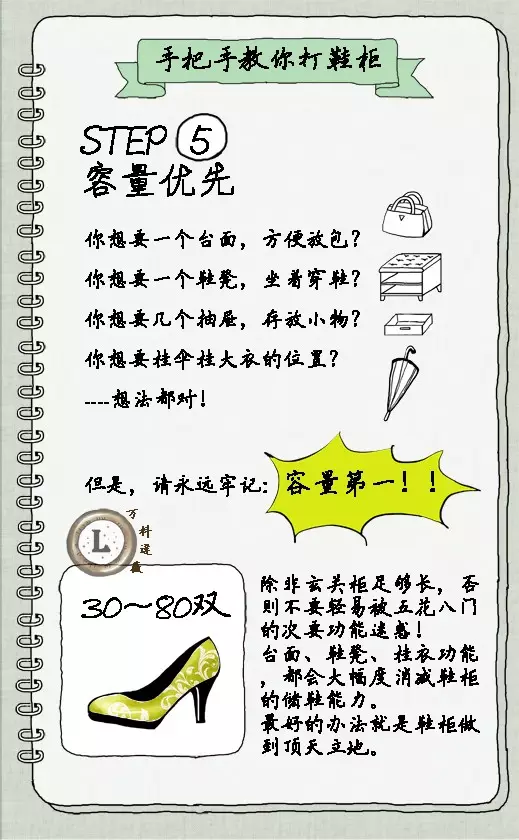 手把手教你打鞋柜
STEP 5
容量优先
你想要一个台面，方便放包？
你想要一个鞋凳，坐着穿鞋？
你想要几个抽屉，存放小物？
你想要挂伞挂大衣的位置？
----想法都对！
但是，请永远牢记：容量第一！！
L
万
料
逻
30～80双
除非玄关柜足够长，否
则不要轻易被五花八门
的次要功能迷惑！
台面、鞋凳、挂衣功能
，都会大幅度消减鞋柜
的储鞋能力。
最好的办法就是鞋柜做
到顶天立地。